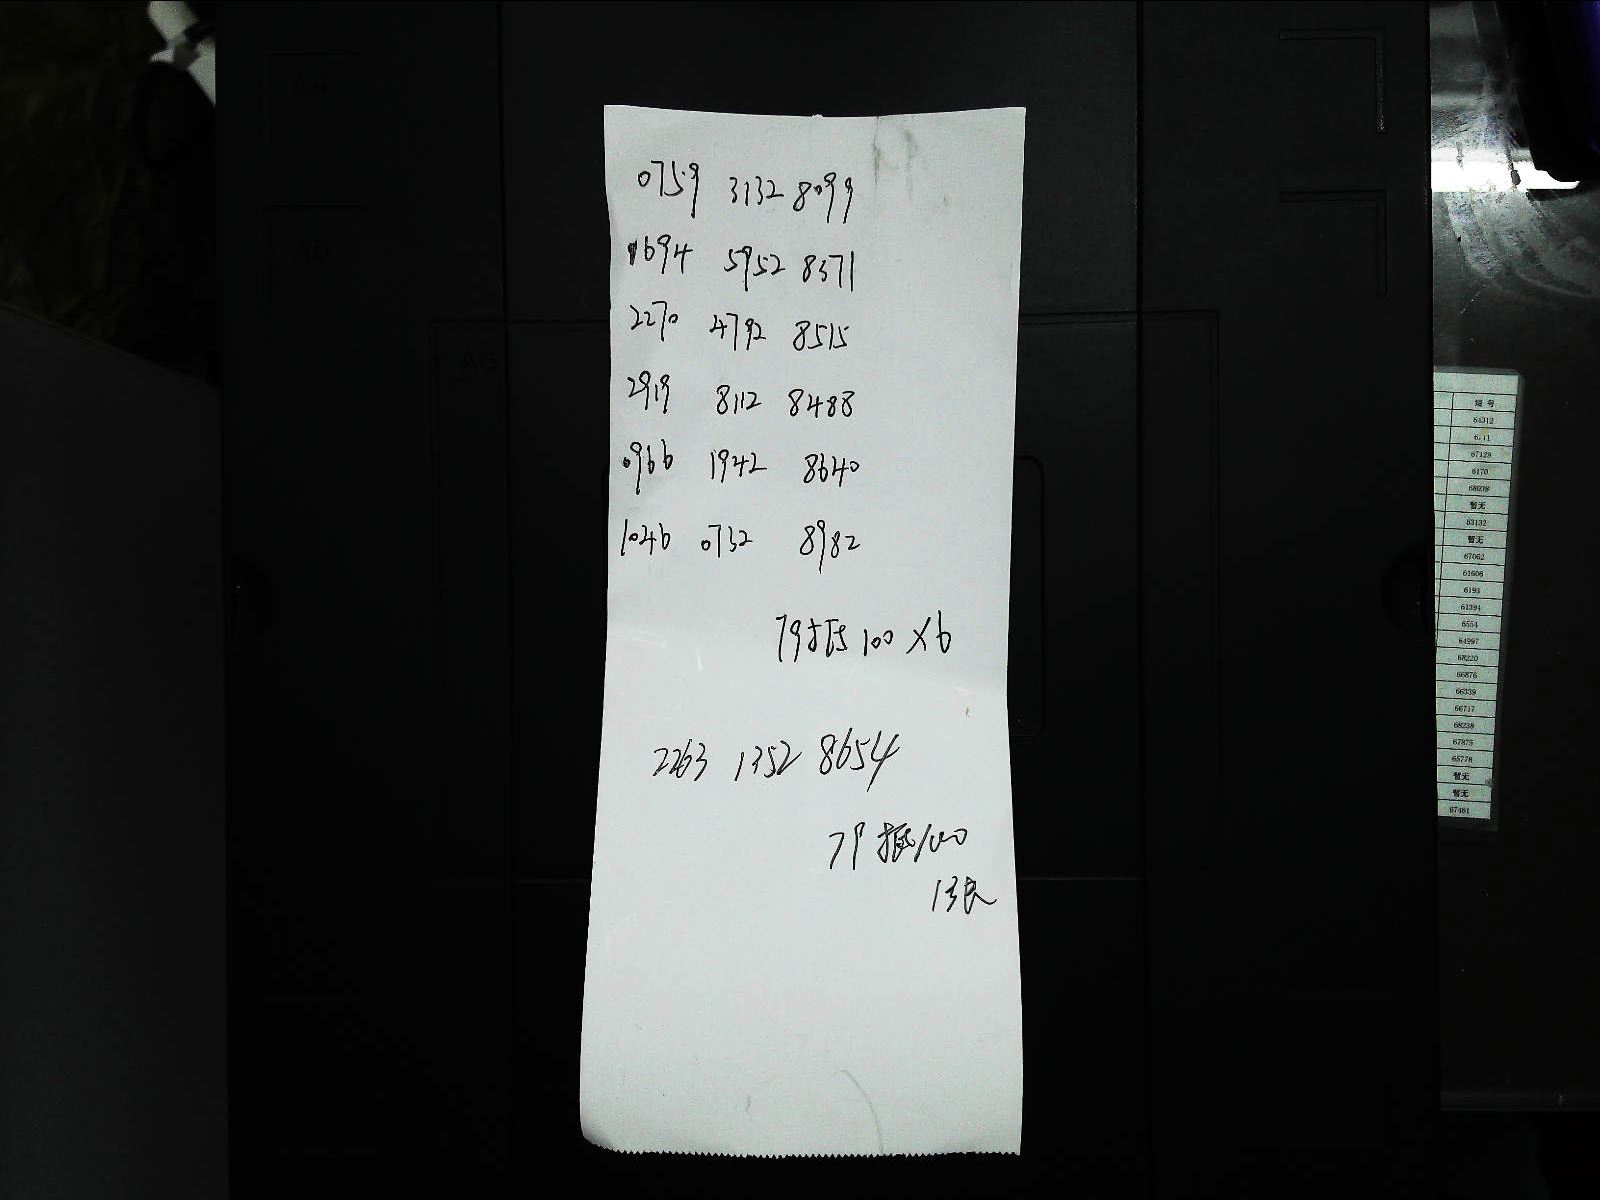 0759 3132 8099
1694 5952 8371
2270 4792 8515
2919 8112 8488
0966 1942 8640
1046 0732 8982
79抵100 X6
2263 1352 8654
79抵100
13张
短号
64312
67129
6170
68038
暂无
63132
暂无
67062
61606
6193
61394
6554
64997
68220
66876
66339
66717
68238
67875
65778
暂无
暂无
67461
A4
A5
A6